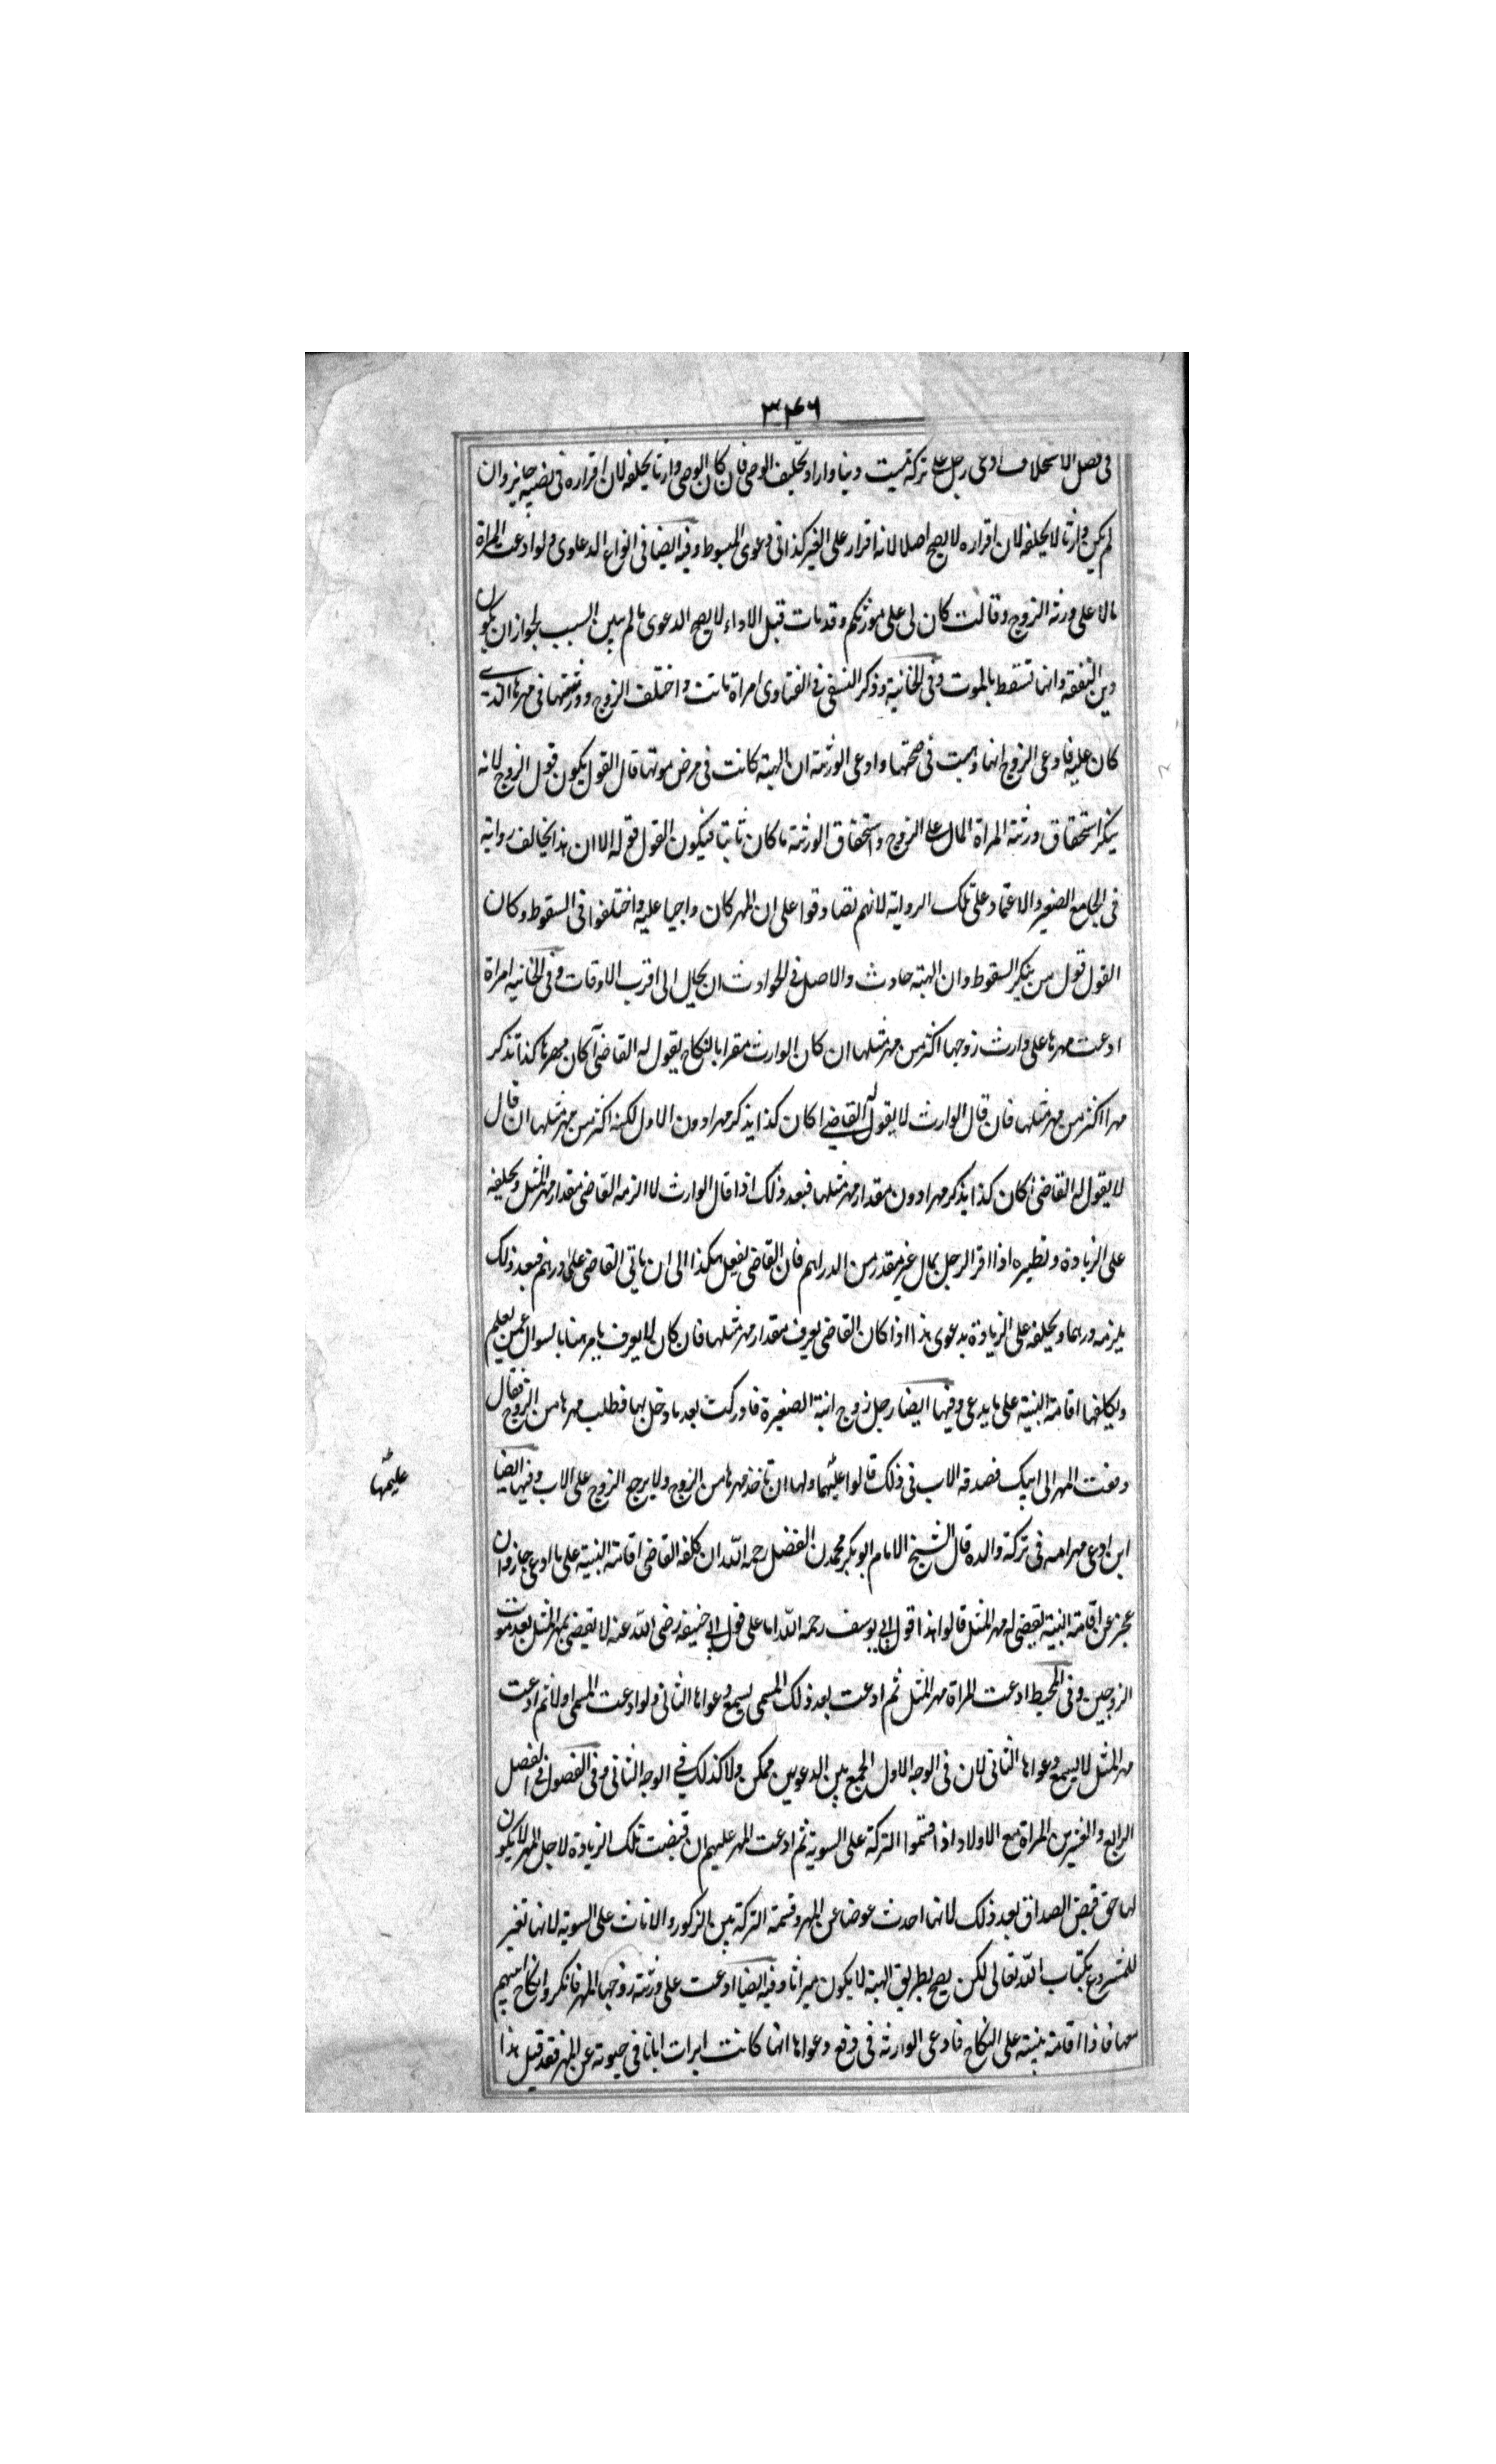 ٣٤٦
فى فصل الاستحلاف ادعى رجل على تركة ميت دينا واراد تحليف الوصى فان كان الوصى وارثا يحلفه لان اقراره فى نصيبه جايز وان
لم يكن وارثا لا يحلفه لان اقراره لا يصح اصلا لانه اقرار على الغير كذا فى دعوى المبسوط وفيه ايضا فى انواع الدعاوى ولو ادعت المراة
مالا على ورثة الزوج وقالت كان لى على مورثكم وقد مات قبل الاداء لا يصح الدعوى ما لم يبين السبب لجواز ان يكون
دين النفقة وانها تسقط بالموت وفى الخانية وذكر النسفى فى الفتاوى امراة ماتت واختلف الزوج وورثتها فى مهرها الذى
كان عليه فادعى الزوج انها وهبت فى صحتها وادعى الورثة ان الهبة كانت فى مرض موتها قال القول يكون قول الزوج لانه
ينكر استحقاق ورثة المراة المال على الزوج واستحقاق الورثة ما كان ثابتا فيكون القول قوله الا ان هذا يخالف رواية
فى الجامع الصغير والاعتماد على تلك الرواية لانهم تصادقوا على ان المهر كان واجبا عليه واختلفوا فى السقوط وكان
القول قول من ينكر السقوط وان الهبة حادث والاصل فى الحوادث ان يحال الى اقرب الاوقات وفى الخانيه امراة
ادعت مهرها على وارث زوجها اكثر من مهر مثلها ان كان الوارث مقرا بالنكاح يقول له القاضى أكان مهرها كذا تذكر
مهرا اكثر من مهر مثلها فان قال الوارث لا يقول له القاضى اكان كذا يذكر مهرا دون الاول لكنه اكثر من مهر مثلها ان قال
لا يقول له القاضى أكان كذا يذكر مهرا دون مقدار مهر مثلها فبعد ذلك اذا قال الوارث لا الزمه القاضى مقدار مهر المثل ويحلفه
على الزيادة ونظيره اذا اقر الرجل بمال غير مقدر من الدراهم فان القاضى يفعل هكذا الى ان ياتى القاضى على درهم فبعد ذلك
يلزمه درهما ويحلفه على الزيادة بدعوى هذا اذا كان القاضى يعرف مقدار مهر مثلها فان كان لا يعرف يامر هنا بالسوال عمن يعلم
ويكلفها اقامة البينة على ما يدعى وفيها ايضا رجل زوج ابنة الصغيرة فادركت بعد ما دخل بها فطلب مهرها من الزوج فقال
دفعت المهر الى ابيك فصدقه الاب فى ذلك قالوا عليهما ولها ان تاخذ مهرها من الزوج ولا يرجع الزوج على الاب وفيها ايضا
عليهما
ابن ادعى مهر امه فى تركة والده قال الشيخ الامام ابو بكر محمد بن الفضل رحمه الله ان كلفه القاضى اقامة البينة على ما ادعى جاز وان
عجز عن اقامة البينة يقضى له مهر المثل قالوا هذا قول ابى يوسف رحمه الله اما على قول ابى حنيفه رضى الله عنه لا يقضى بمهر المثل بعد موت
الزوجين وفى المحيط ادعت المراة مهر المثل ثم ادعت بعد ذلك المسمى يسمع دعواها الثانى ولو ادعت المسمى اولا ثم ادعت
مهر المثل لا يسمع دعواها الثانى لان فى الوجه الاول الجمع بين الدعويين ممكن ولا كذلك فى الوجه الثانى وفى الفصول فى الفصل
الرابع والعشرين المراة مع الاولاد اذا قسموا التركة على السوية ثم ادعت المهر عليهم ان قبضت تلك الزيادة لاجل المهر لا يكون
لها حق قبض الصداق بعد ذلك لانها اخذت عوضا عن المهر وقسمة التركة بين الذكور والاناث على السوية لانها تغير
للمشروع بكتاب الله تعالى لكن يصح بطريق الهبة لا يكون ميراثا وفيه ايضا ادعت على ورثة زوجها المهر فانكروا نكاح ابيهم
معها فاذا اقامة بينة على النكاح فادعى الوارثة فى دفع دعواها انها كانت ابرات ابانا فى حيوته عن المهر فقد قيل هذا